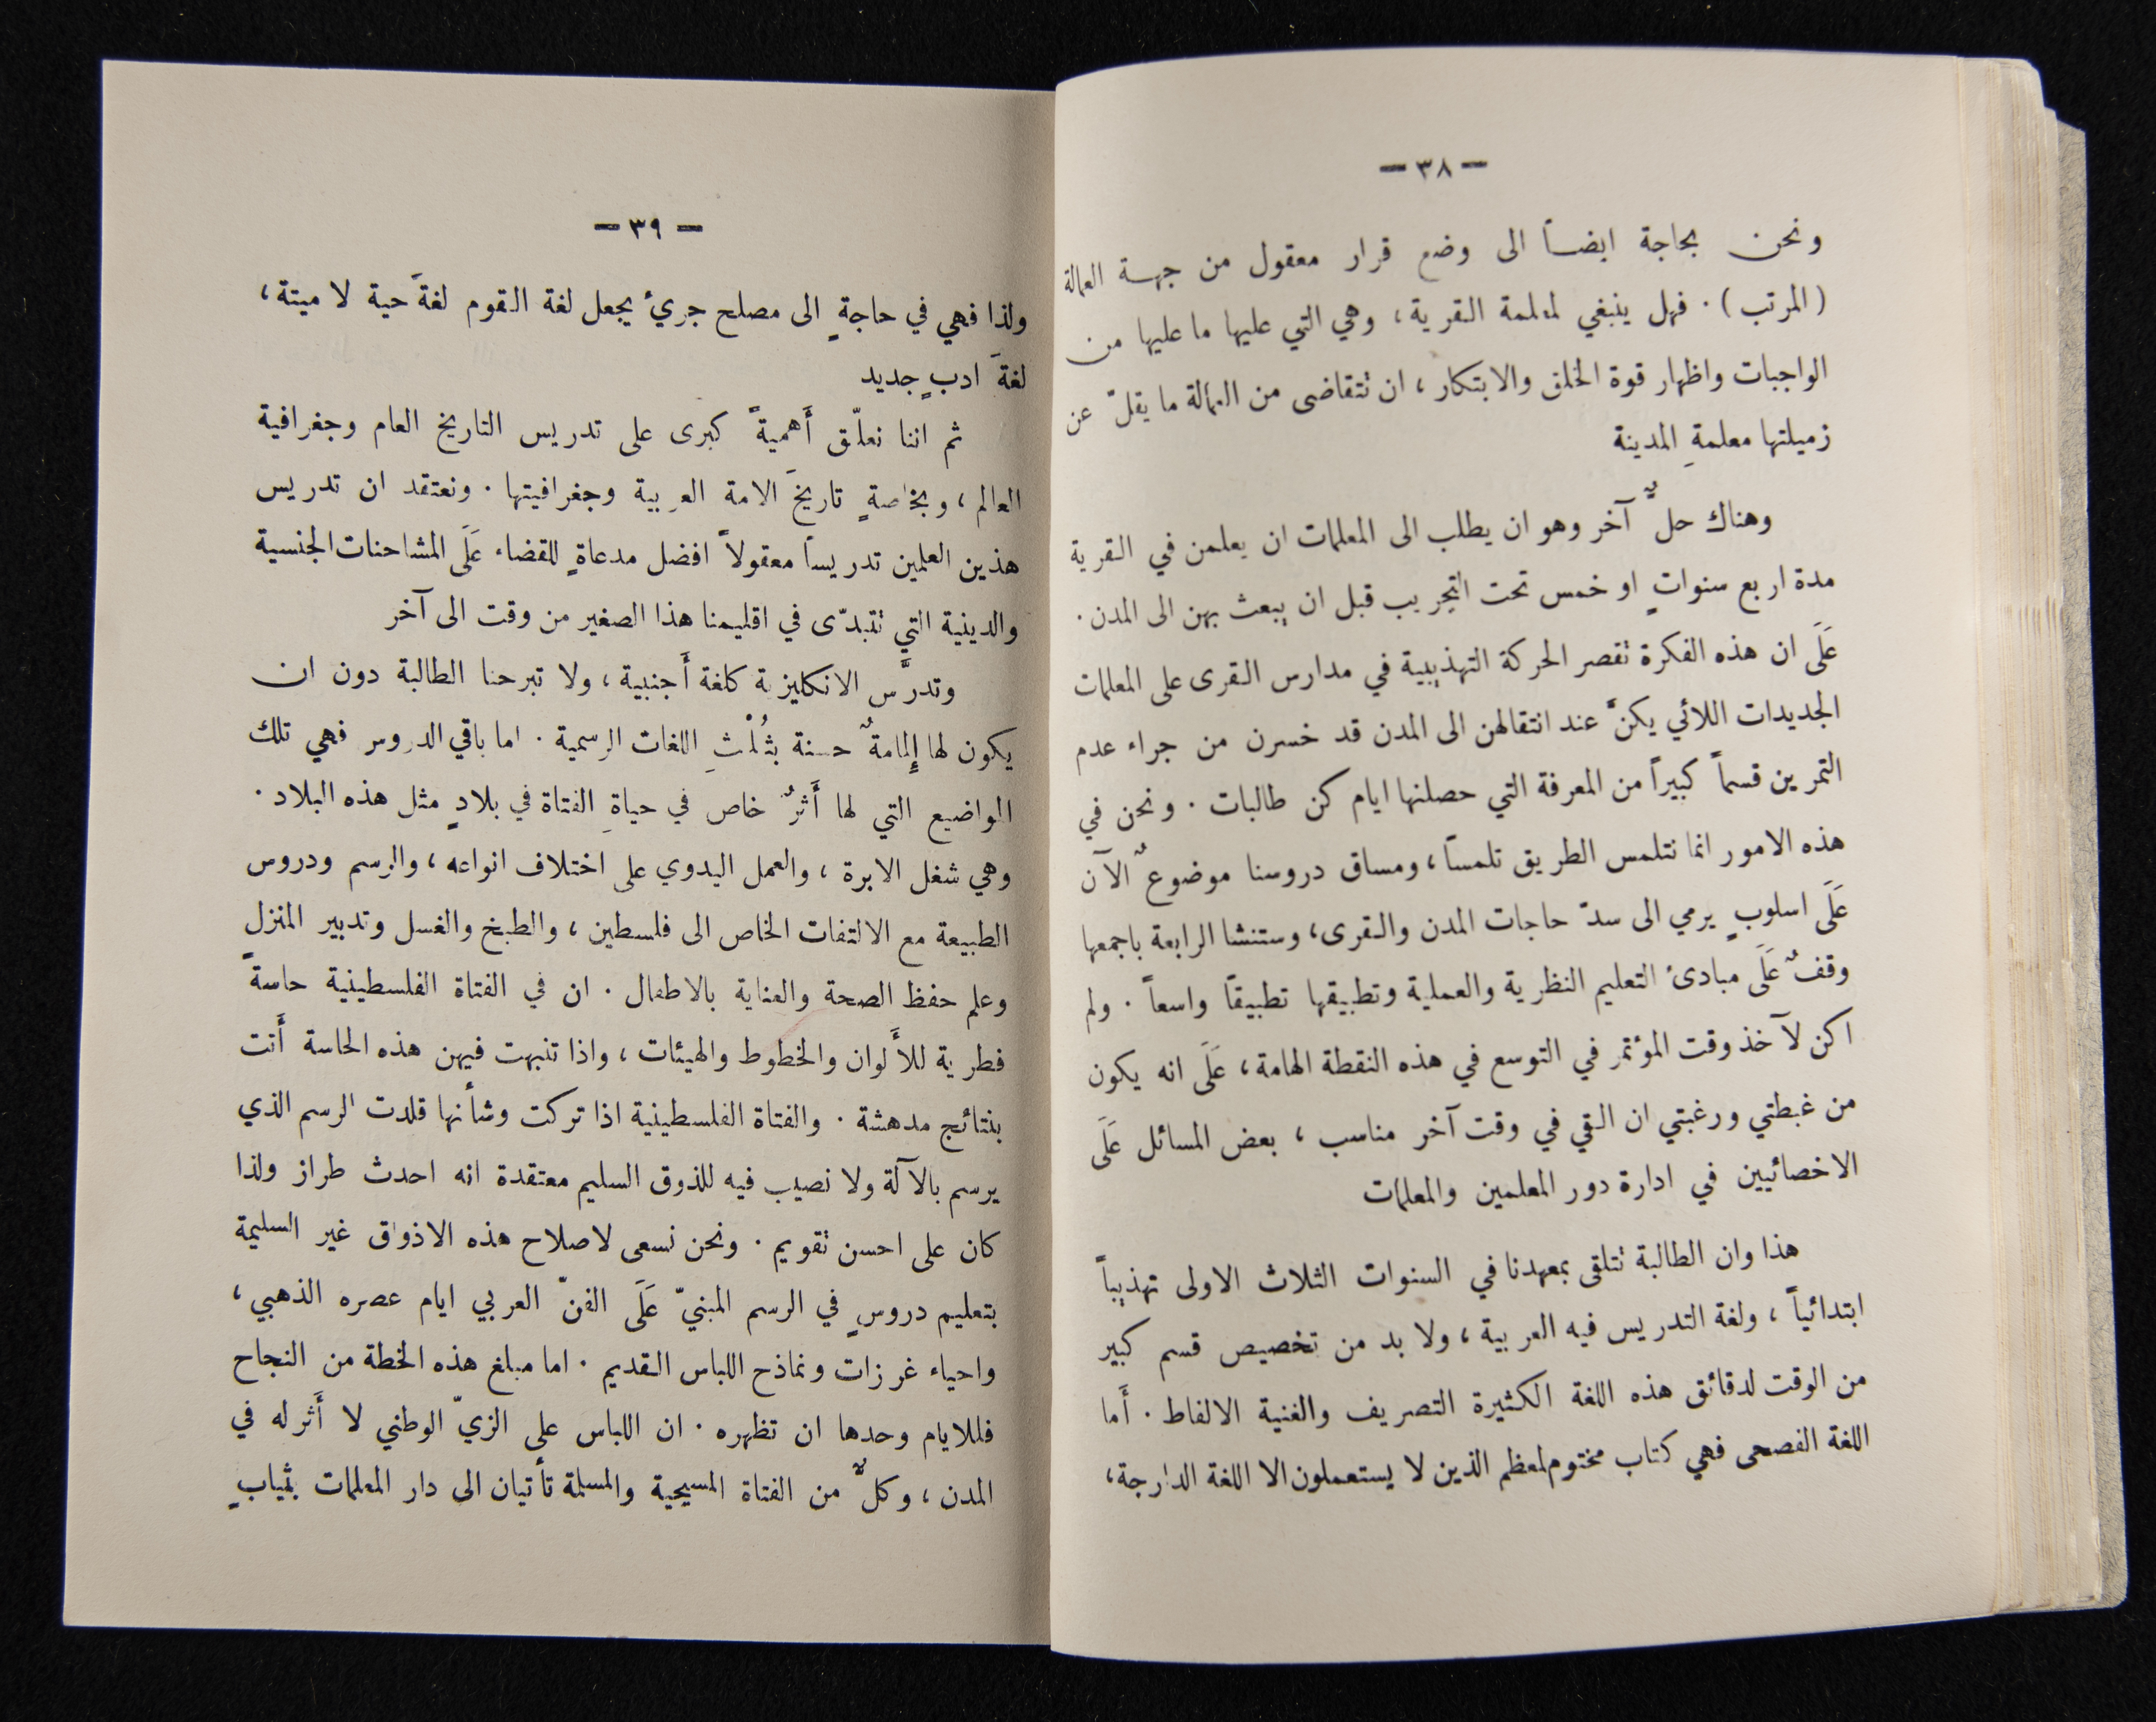 — ٣٨ —
ونحن بحاجة ايضاً الى وضع قرار معقول من جهة العمالة
(المرتب). فهل ينبغي لمعلمة القرية، وهي التي عليها ما عليها من
الواجبات واظهار قوة الخلق والابتكار، ان تتقاضى من العمالة ما يقلّ عن
زميلتها معلمةِ المدينة
وهناك حلٌّ آخر وهو ان يطلب الى المعلمات ان يعلمن في القرية
مدة اربع سنواتٍ او خمس تحت التجريب قبل ان يبعث بهن الى المدن.
عَلَى ان هذه الفكرة تقصر الحركة التهذيبية في مدارس القرى على المعلمات
الجديدات اللائي يكنَّ عند انتقالهن الى المدن قد خسرن من جراء عدم
التمرين قسماً كبيراً من المعرفة التي حصلنها ايام كن طالبات. ونحن في
هذه الامور انما نتلمس الطريق تلمساً، ومساق دروسنا موضوعٌ الآن
عَلَى اسلوبٍ يرمي الى سدّ حاجات المدن والقرى، وستنشا الرابعة باجمعها
وقفٌ عَلَى مبادئ التعليم النظرية والعملية وتطبيقها تطبيقاً واسعاً. ولم
اكن لآخذ وقت المؤتمر في التوسع في هذه النقطة الهامة، عَلَى انه يكون
من غبطتي ورغبتي ان القي في وقت آخر مناسب، بعض المسائل عَلَى
الاخصائيين في ادارة دور المعلمين والمعلمات
هذا وان الطالبة تتلقى بمعهدنا في السنوات الثلاث الاولى تهذيباً
ابتدائياً، ولغة التدريس فيه العربية، ولا بد من تخصيص قسم كبير
من الوقت لدقائق هذه اللغة الكثيرة التصريف والغنية الالفاط. أَما
اللغة الفصحى فهي كتاب مختوم لمعظم الذين لا يستعملون الا اللغة الدارجة،
— ٣٩ —
ولذا فهي في حاجةٍ الى مصلح جريءٍ يجعل لغة القوم لغةً حية لا ميتة،
لغةَ ادبٍ جديد
ثم اننا نعلّق أَهميةً كبرى على تدريس التاريخ العام وجغرافية
العالم، وبخاصةٍ تاريخَ الامة العربية وجغرافيتها. ونعتقد ان تدريس
هذين العلمين تدريساً معقولاً افضل مدعاةٍ للقضاء عَلَى المشاحنات الجنسية
والدينية التي تتبدّى في اقليمنا هذا الصغير من وقت الى آخر
وتدرَّس الانكليزية كلغة أَجنبية، ولا تبرحنا الطالبة دون ان
يكون لها إِلمامةٌ حسنة بثُلْثِ اللغات الرسمية. اما باقي الدروس فهي تلك
المواضيع التي لها أَثرٌ خاص في حياةِ الفتاة في بلادٍ مثل هذه البلاد.
وهي شغل الابرة، والعمل اليدوي على اختلاف انواعه، والرسم ودروس
الطبيعة مع الالتفات الخاص الى فلسطين، والطبخ والغسل وتدبير المنزلِ
وعلم حفظ الصحة والعناية بالاطفال. ان في الفتاة الفلسطينية حاسةً
فطرية للأَلوان والخطوط والهيئات، واذا تنبهت فيهن هذه الحاسة أَتت
بنتائج مدهشة. والفتاة الفلسطينية اذا تركت وشأنها قلدت الرسم الذي
يرسم بالآلة ولا نصيب فيه للذوق السليم معتقدة انه احدث طراز ولذا
كان على احسن تقويم. ونحن نسعى لاصلاح هذه الاذواق غير السليمة
بتعليم دروسٍ في الرسم المبنيّ عَلَى الفنّ العربي ايام عصره الذهبي،
واحياء غرزات ونماذح اللباس القديم. اما مبلغ هذه الخطة من النجاح
فللايام وحدها ان تظهره. ان اللباس على الزيّ الوطني لا أَثر له في
المدن، وكلٌّ من الفتاة المسيحية والمسلمة تأتيان الى دار المعلمات بثيابٍ